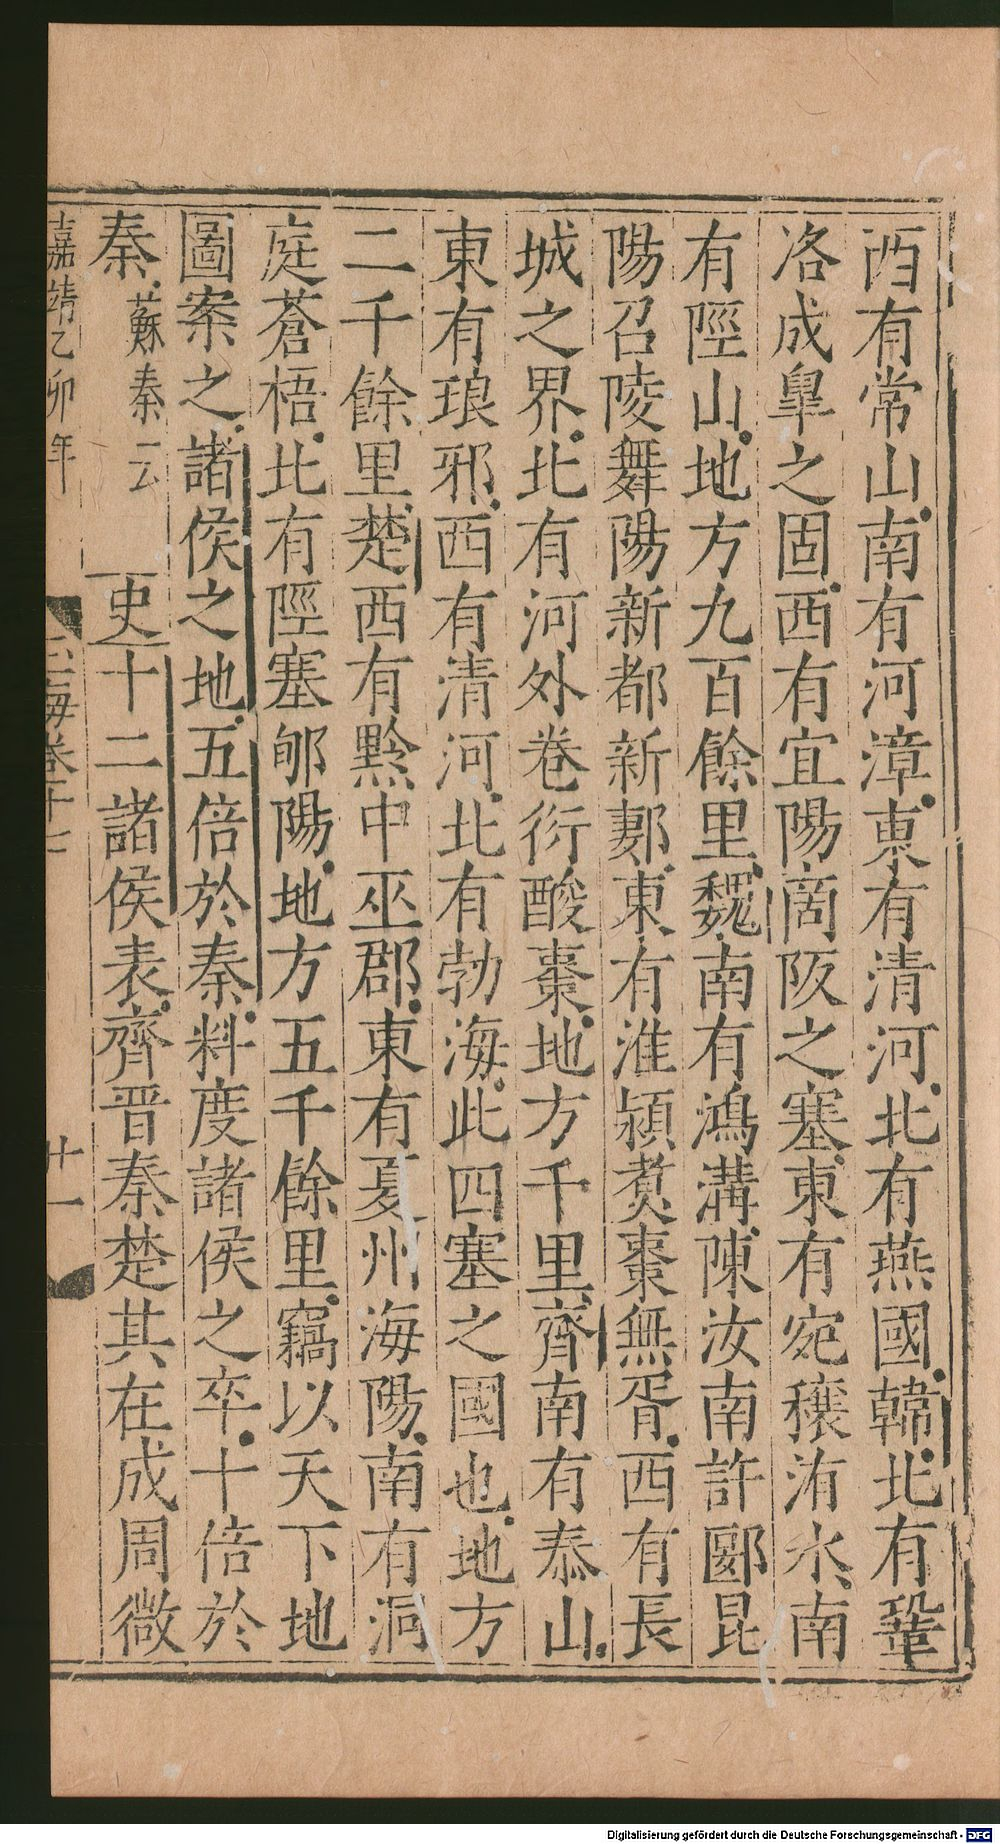 西有常山南有河漳東有清河北有燕國韓北有鞏
洛成臯之固西有宜陽啇阪之塞東有宛穰洧水南
有陘山地方九百餘里魏南有鴻溝陳汝南許郾昆
陽召陵舞陽新都新郪東有淮潁煑棗無胥西有長
城之界北有河外卷衍酸棗地方千里齊南有泰山
東有琅邪西有清河北有勃海此四塞之國也地方
二千餘里楚西有黔中巫郡東有夏州海陽南有洞
庭蒼梧北有陘塞郇陽地方五千餘里竊以天下地
圖案之諸侯之地五倍於秦料度諸侯之卒十倍於
秦蘇秦云 史十二諸侯表齊晋秦楚其在成周微
嘉靖乙卯年 玉海卷十七 廿一
Digitalisierung gefördert durch die Deutsche Forschungsgemeinschaft - DFG